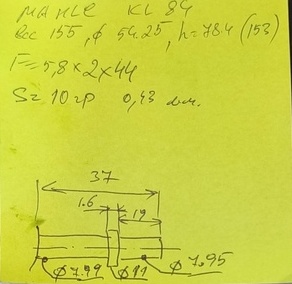 MAHLE KL 84
Вес 155, ϕ 54.25, h=78.4 (153)
F=5,8×2×44
S=10гр 0,43 дм.
37
1.6
19
ϕ7.99 ϕ11 ϕ7.95